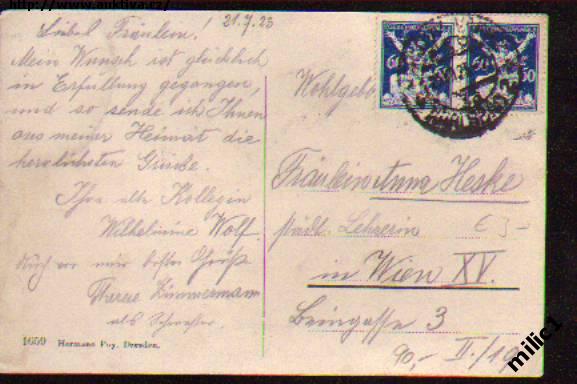 http://www.auktiva.cz/
21.7.23
Liebes Fräulein!
Mein Wunsch ist glücklich
in Erfüllung gegangen,
und so sende ich Ihnen
aus meiner Heimat die
herzlichsten Grüsse.
Ihre alte Kollegin
Wilhelmine Wolf.
Auch von mir besten Gruß
Zimmermann
als Schwester.
1659 Hermann Poy, Dresden.
60
Wohlgeb
Fräulein Anna Heske
städt. Lehrerin
€3-
in Wien XV.
Beingasse 3
90,- II./19
milic1